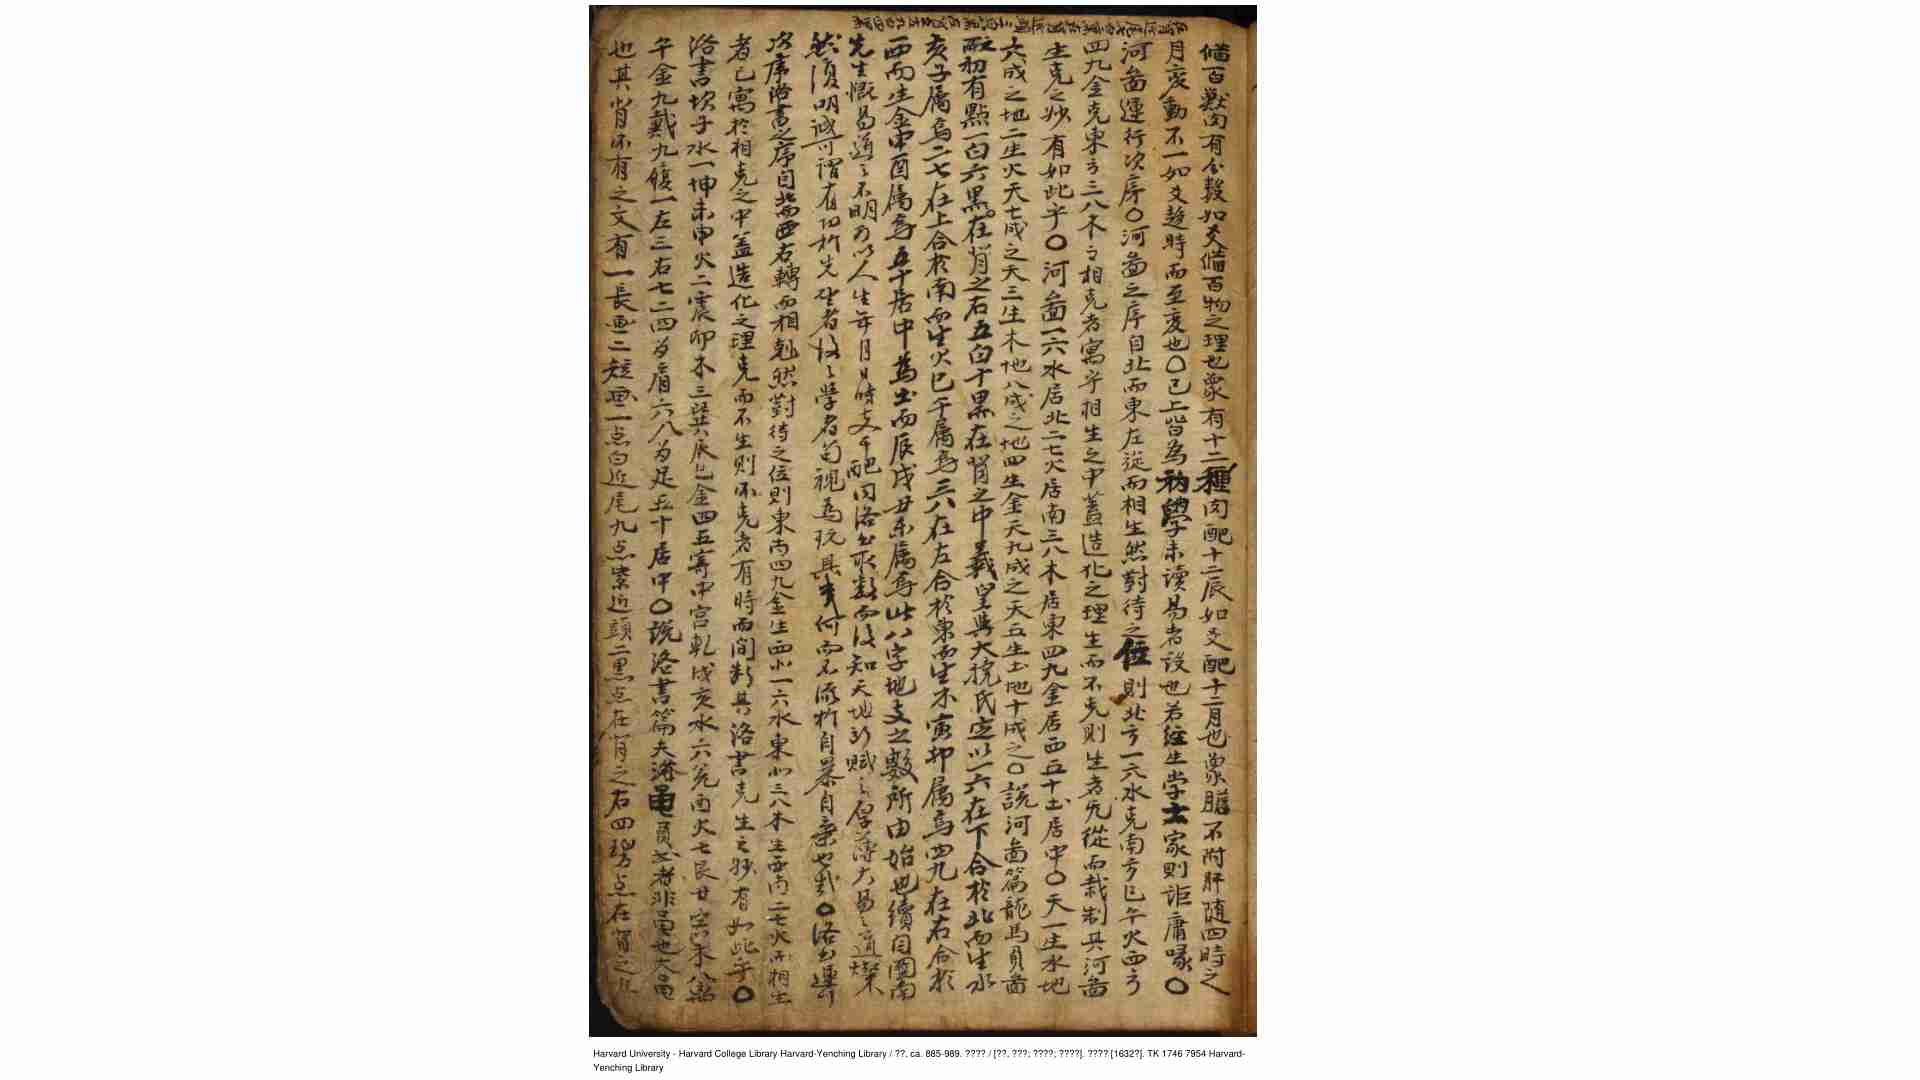 備百獸肉有分數如爻備百物之理也象有十二種肉配十二辰如爻配十二月也象膽不附肝隨四時之
月爻動不一如爻趍時而至変也〇已上皆為初學未讀易者設也若經生学士家則詎庸喙〇
河啚運行次序〇河啚之序自北而東左旋而相生然對待之位則北方一六水克南方巳午火西方
四九金克東方三八木之相克者寓乎相生之中蓋造化之理生而不克則生者无從而裁制其河啚
生克之妙有如此乎〇河啚一六水居北二七火居南三八木居東四九金居西五十土居中〇天一生水地
六成之地二生火天七成之天三生木地八成之地四生金天九成之天五生土地十成之〇説河啚篇龍馬負啚
初有點一白六黑在背之右五白十黑在背之中羲皇與大撓氏定以一六在下合於北而生水
亥子属焉二七在上合於南而生火巳午属焉三八在左合於東而生木寅卯属焉四九在右合於
西而生金申酉属焉五十居中為土而辰戌丑未属焉此八字地支之數所由始也續自圖南
先生慨易道之不明乃以人生年月日時支干配河洛出取數而後知天地所賦之厚薄大易之道燦
然復明誠可謂有功於先聖者後之學者苟視為玩具何而不流於自暴自棄也哉〇洛出運行
次序洛書之序自北而西右轉而相尅然對待之位則東南四九金生西北一六水東北三八木生西南二七火而相生
者已寓於相克之中蓋造化之理克而不生則不克者有時而間断其洛書克生之妙有如此乎〇
洛書坎子水一坤未申火二震卯木三巽辰巳金四五寄中宮乾戌亥水六兌酉火七艮丑寅木八離
午金九戴九履一左三右七二四为肩六八为足五十居中〇說洛書篇夫洛黽負出者非黽也大黽
也其背亦有之文有一長画二短画一点白近尾九点紫近頭二黑点在背之右四碧点在背之左
Harvard University - Harvard College Library Harvard-Yenching Library / ??, ca. 885-989. ???? / [??, ???; ????; ????]. ???? [1632?]. TK 1746 7954 Harvard-
Yenching Library